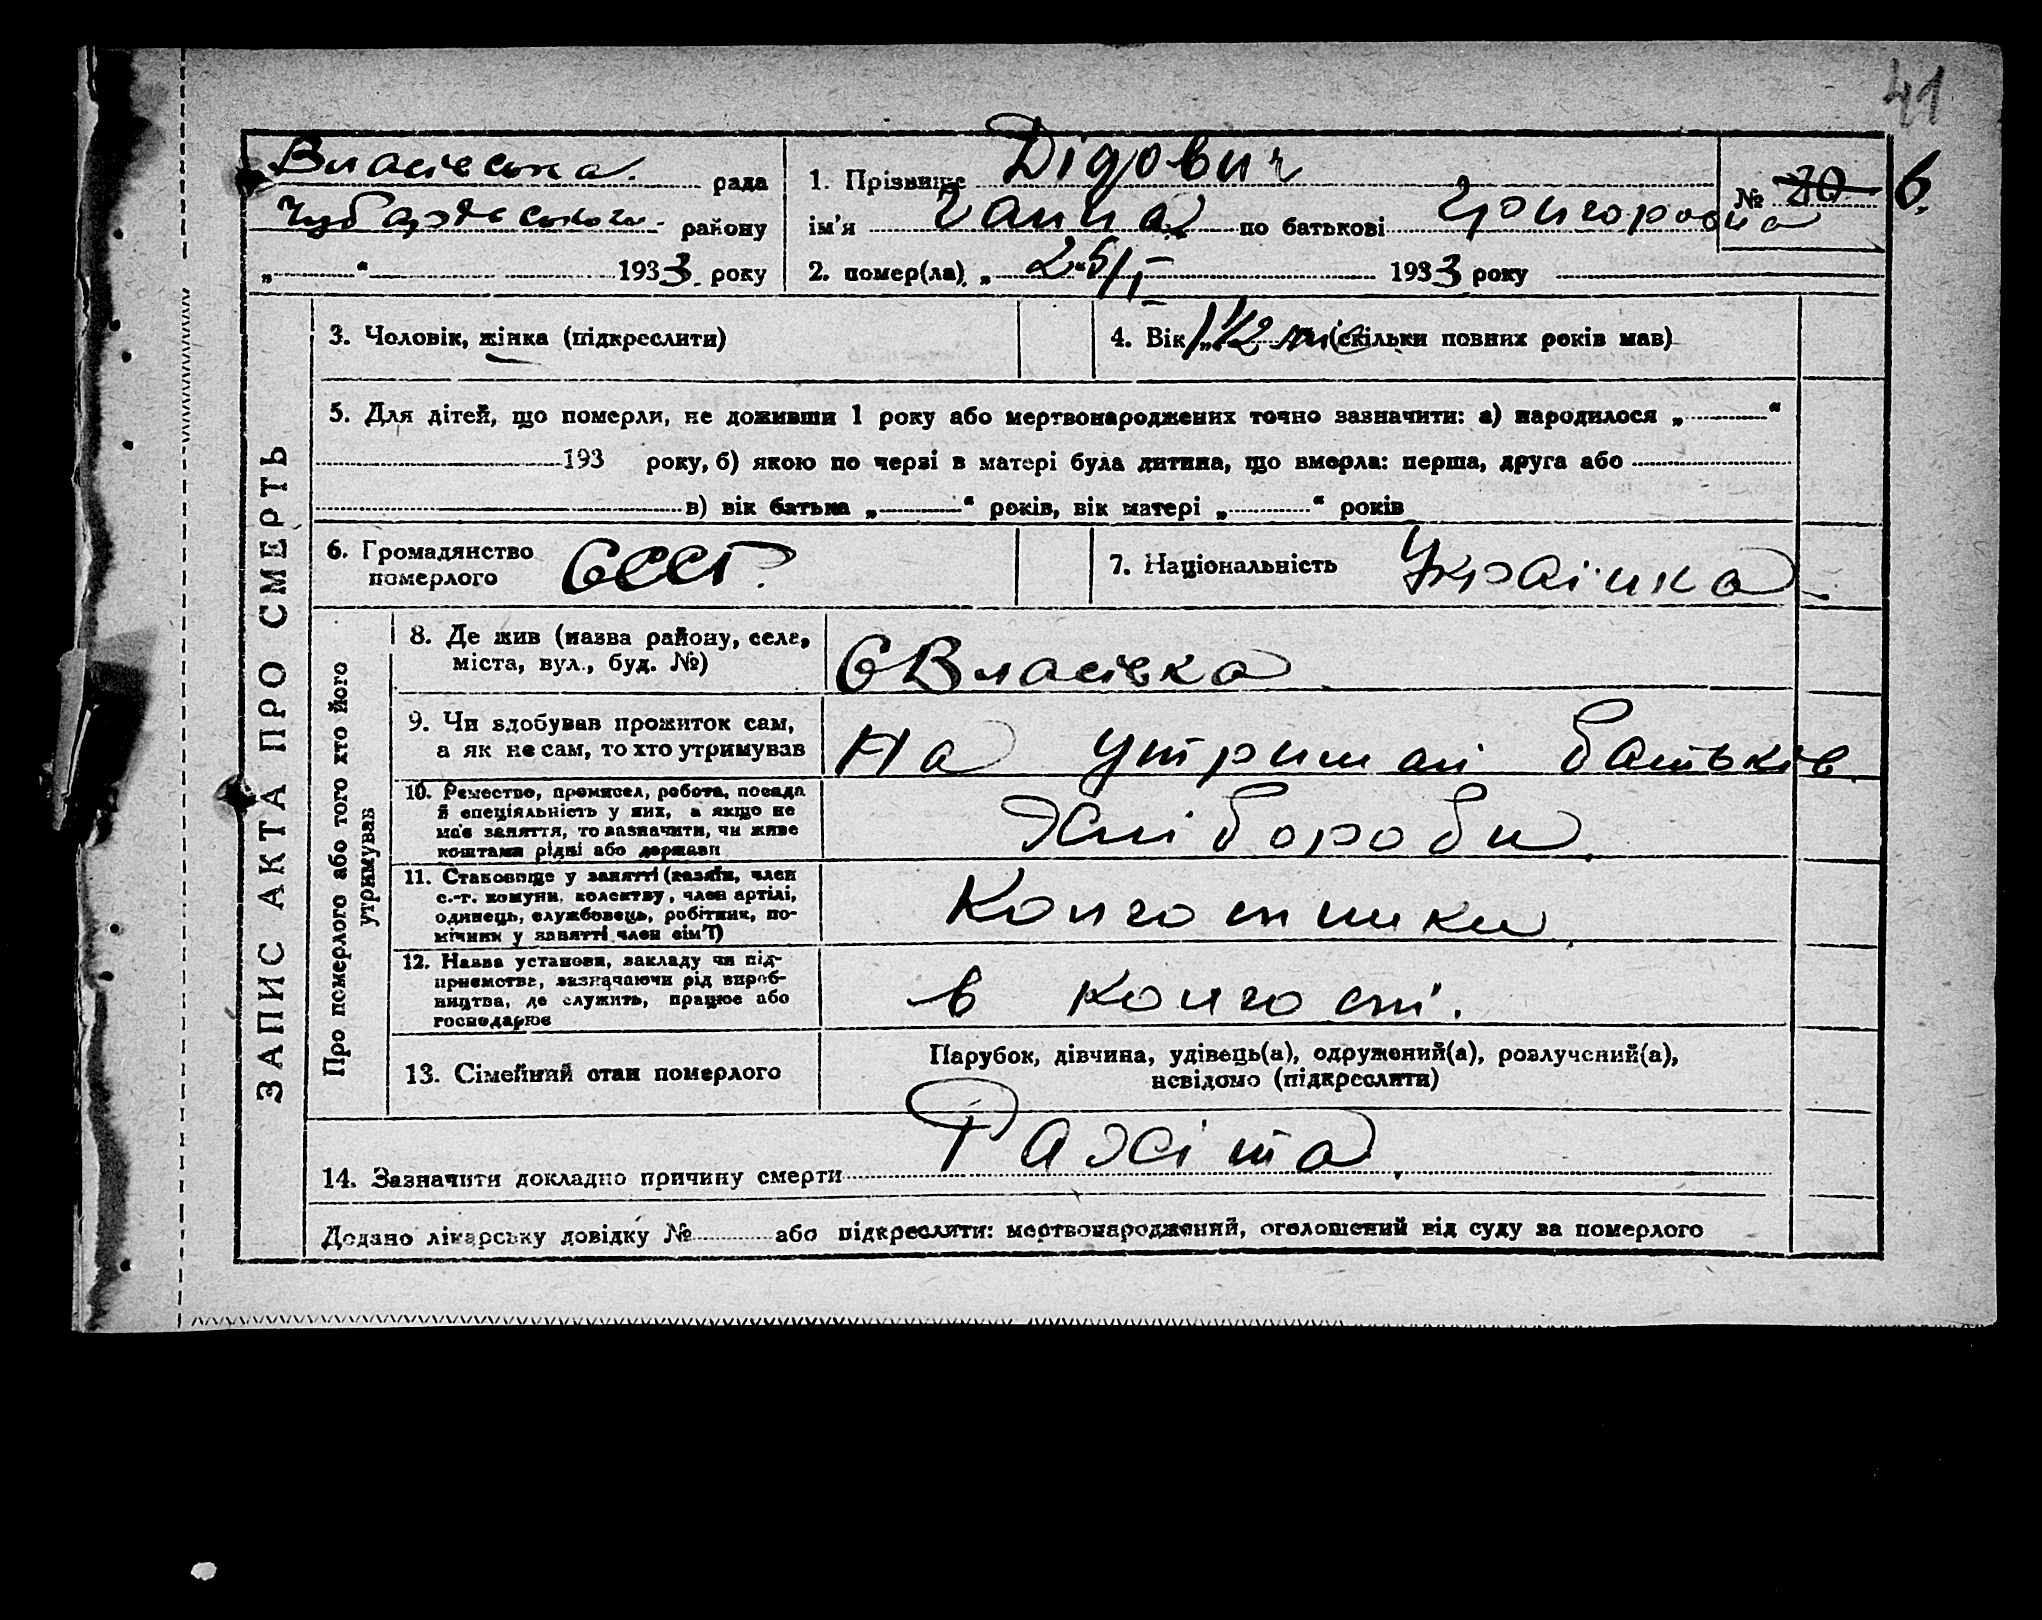 41
Власівська рада
Чубарівського району
„ “ 1933 року
1. Прізвище Дідович
ім'я Ганна по батькові Григоровна
№ 20 6.
2. помер(ла) „ 25/I 1933 року
ЗАПИС АКТА ПРО СМЕРТЬ
3. Чоловік, жінка (підкреслити)
4. Вік 1 1/2 міс (скільки повних років мав)
5. Для дітей, що померли, не доживши 1 року або мертвонароджених точно зазначити: а) народилося „ “
193 року, б) якою по черзі в матері була дитина, що вмерла: перша, друга або
в) вік батька „ “ років, вік матері „ “ років
6. Громадянство
померлого СССР.
7. Національність Українка.
Про померлого або того хто його
утримував
8. Де жив (назва району, села,
міста, вул., буд. №)
С Власівка
9. Чи здобував прожиток сам,
а як не сам, то хто утримував
На утримані батьків.
10. Ремество, промисел, робота, посада
й спеціяльність у них, а якщо не
має заняття, то зазначити, чи живе
коштами рідні або держави
Хлібороби.
11. Становище у занятті (хазяїн, член
с.-г. комуни, колективу, член артілі,
одинець, службовець, робітник, по-
мічник у занятті член сім'ї)
Колгоспники
12. Назва установи, закладу чи під-
приємства, зазначаючи рід вироб-
ництва, де служить, працює або
господарює
в колгоспі.
13. Сімейний стан померлого
Парубок, дівчина, удівець(а), одружений(а), розлучений(а),
невідомо (підкреслити)
14. Зазначити докладно причину смерти Рахіта.
Додано лікарську довідку № або підкреслити: мертвонароджений, оголошений від суду за померлого